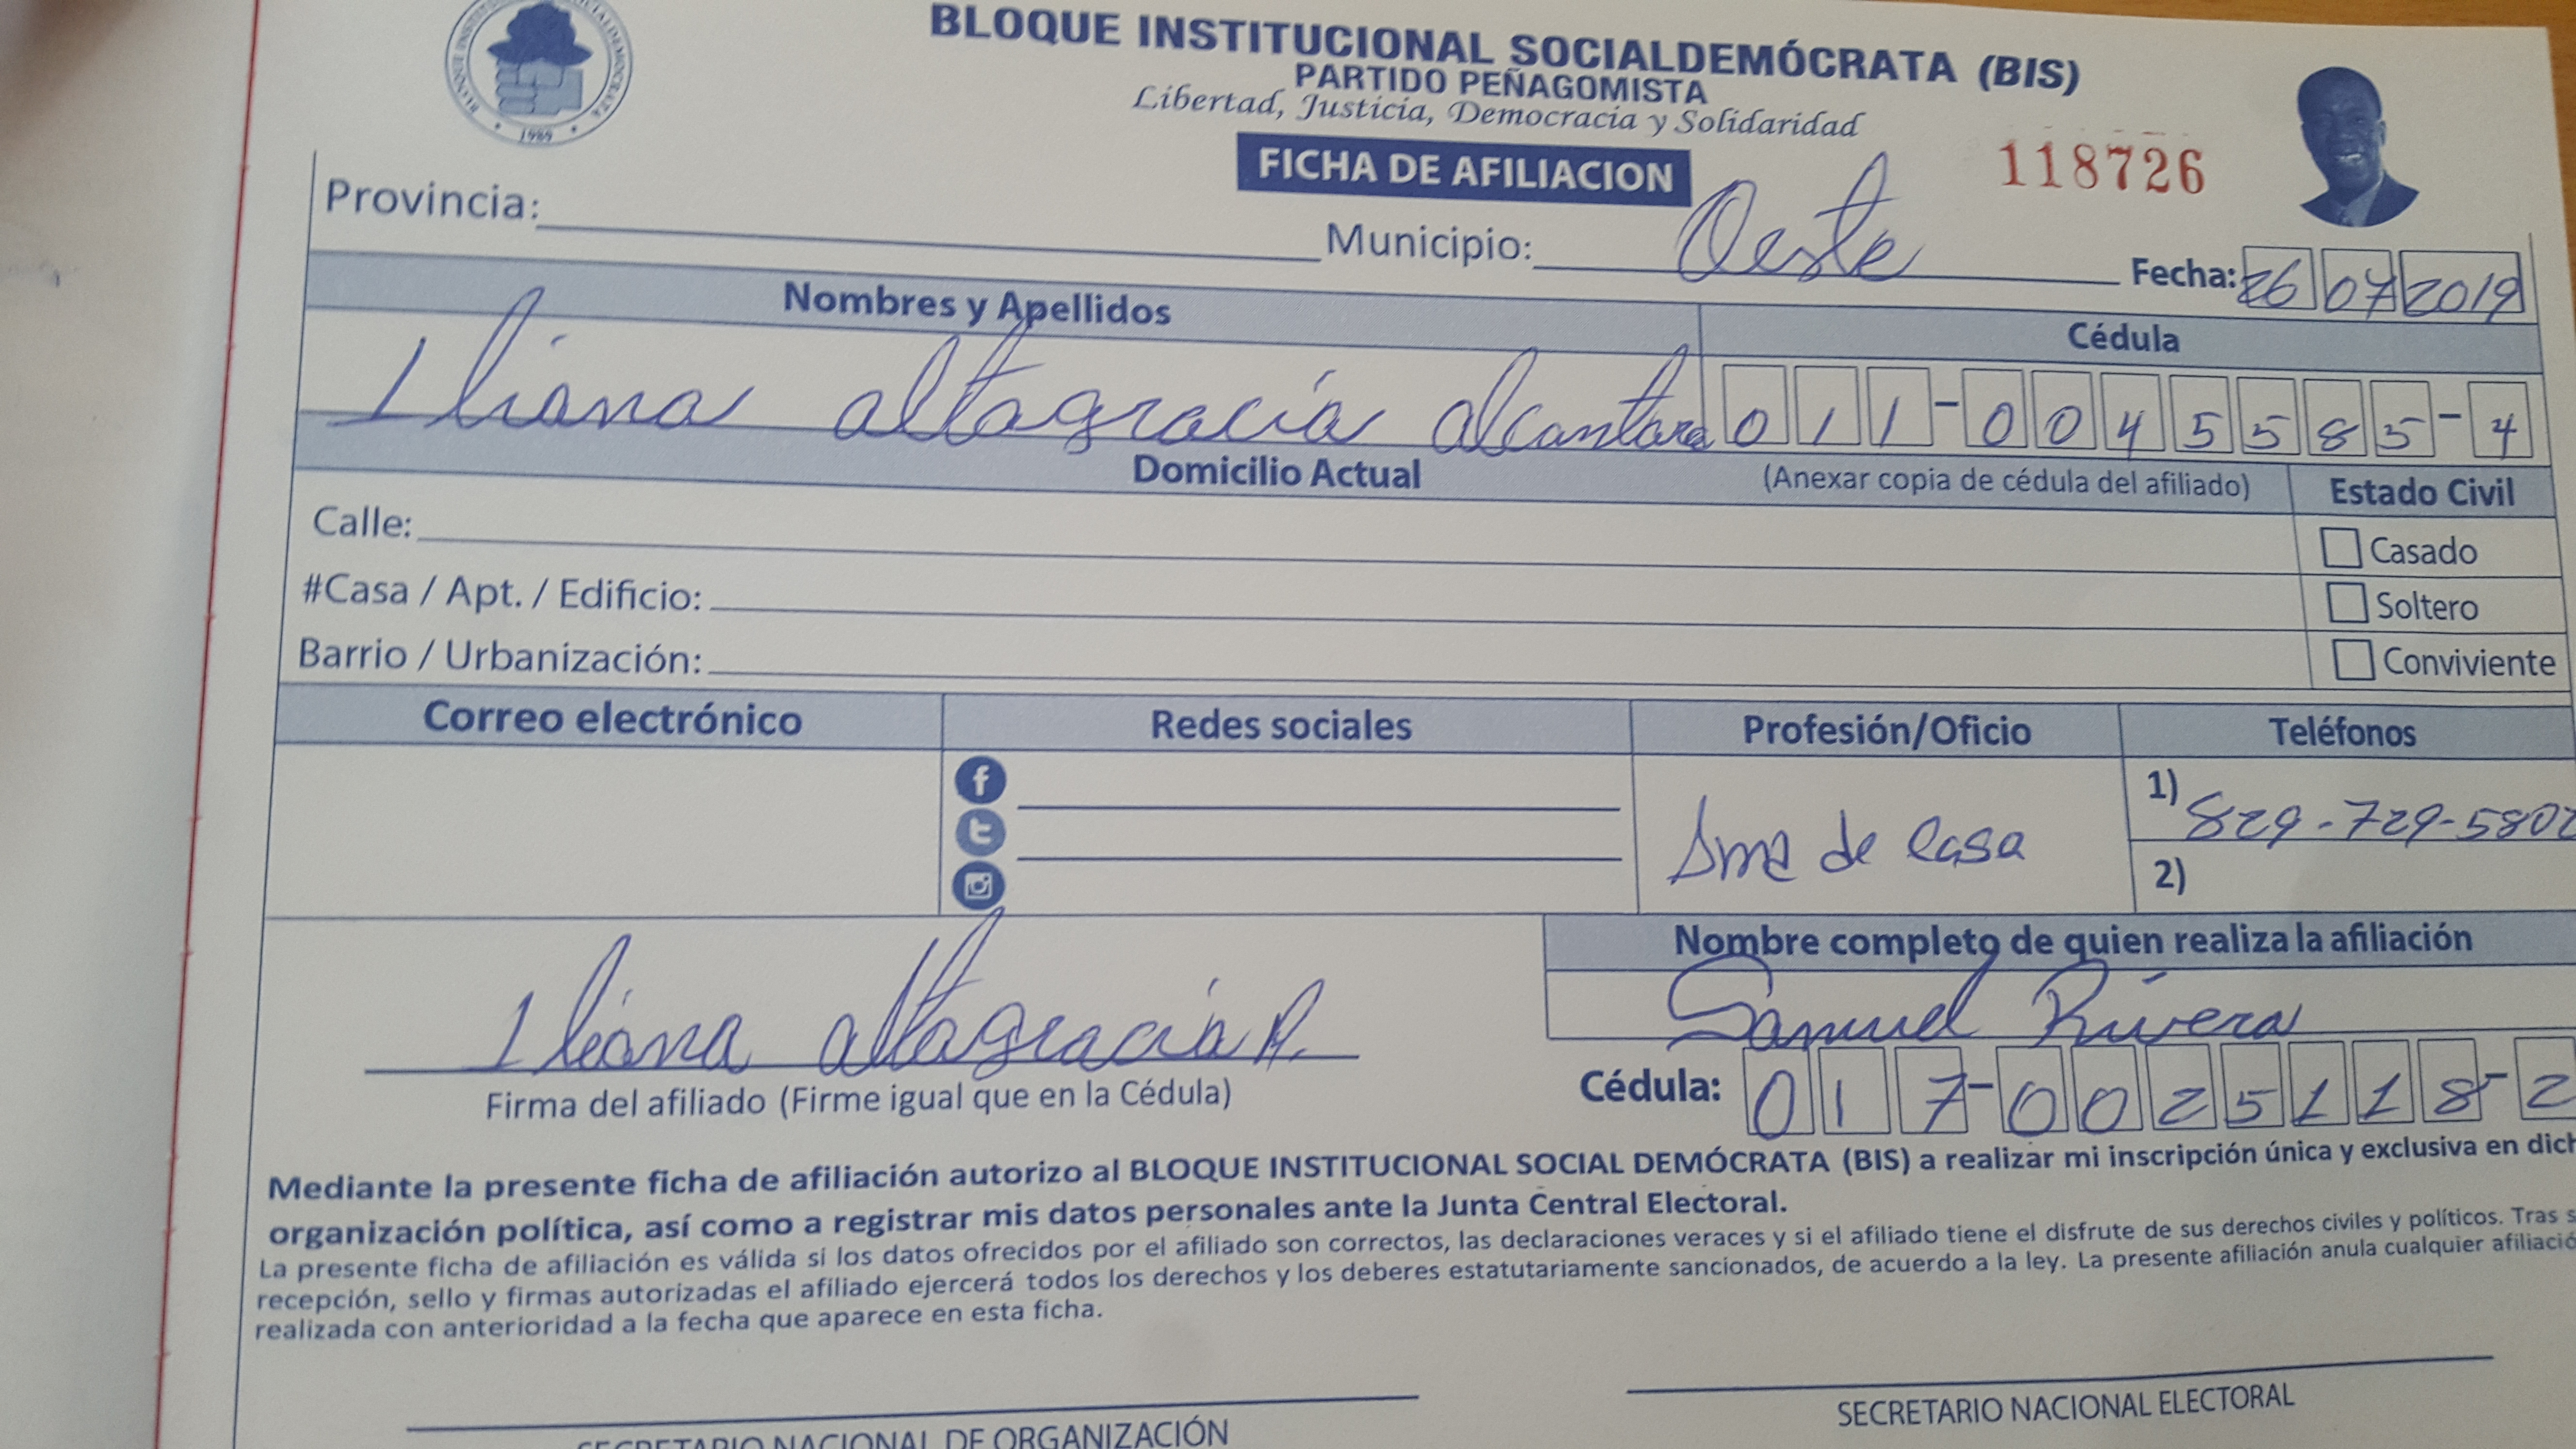 BLOQUE INSTITUCIONAL SOCIALDEMÓCRATA (BIS)
PARTIDO PEÑAGOMISTA
Libertad, Justicia, Democracia y Solidaridad
1989
FICHA DE AFILIACION
118726
Provincia:
Municipio: Oeste
Fecha: 26 07 2019
Nombres y Apellidos
Cédula
Iliana altagracia alcantara 011-0045585-4
Domicilio Actual
(Anexar copia de cédula del afiliado)
Estado Civil
Calle:
Casado
#Casa / Apt. / Edificio:
Soltero
Barrio / Urbanización:
Conviviente
Correo electrónico
Redes sociales
Profesión/Oficio
Teléfonos
1) 829-729-5802
Ama de casa
2)
Nombre completo de quien realiza la afiliación
Samuel Rivera
Iliana altagracia A.
Firma del afiliado (Firme igual que en la Cédula)
Cédula: 017-0025118-2
Mediante la presente ficha de afiliación autorizo al BLOQUE INSTITUCIONAL SOCIAL DEMÓCRATA (BIS) a realizar mi inscripción única y exclusiva en dich
organización política, así como a registrar mis datos personales ante la Junta Central Electoral.
La presente ficha de afiliación es válida si los datos ofrecidos por el afiliado son correctos, las declaraciones veraces y si el afiliado tiene el disfrute de sus derechos civiles y políticos. Tras s
recepción, sello y firmas autorizadas el afiliado ejercerá todos los derechos y los deberes estatutariamente sancionados, de acuerdo a la ley. La presente afiliación anula cualquier afiliació
realizada con anterioridad a la fecha que aparece en esta ficha.
SECRETARIO NACIONAL DE ORGANIZACIÓN
SECRETARIO NACIONAL ELECTORAL